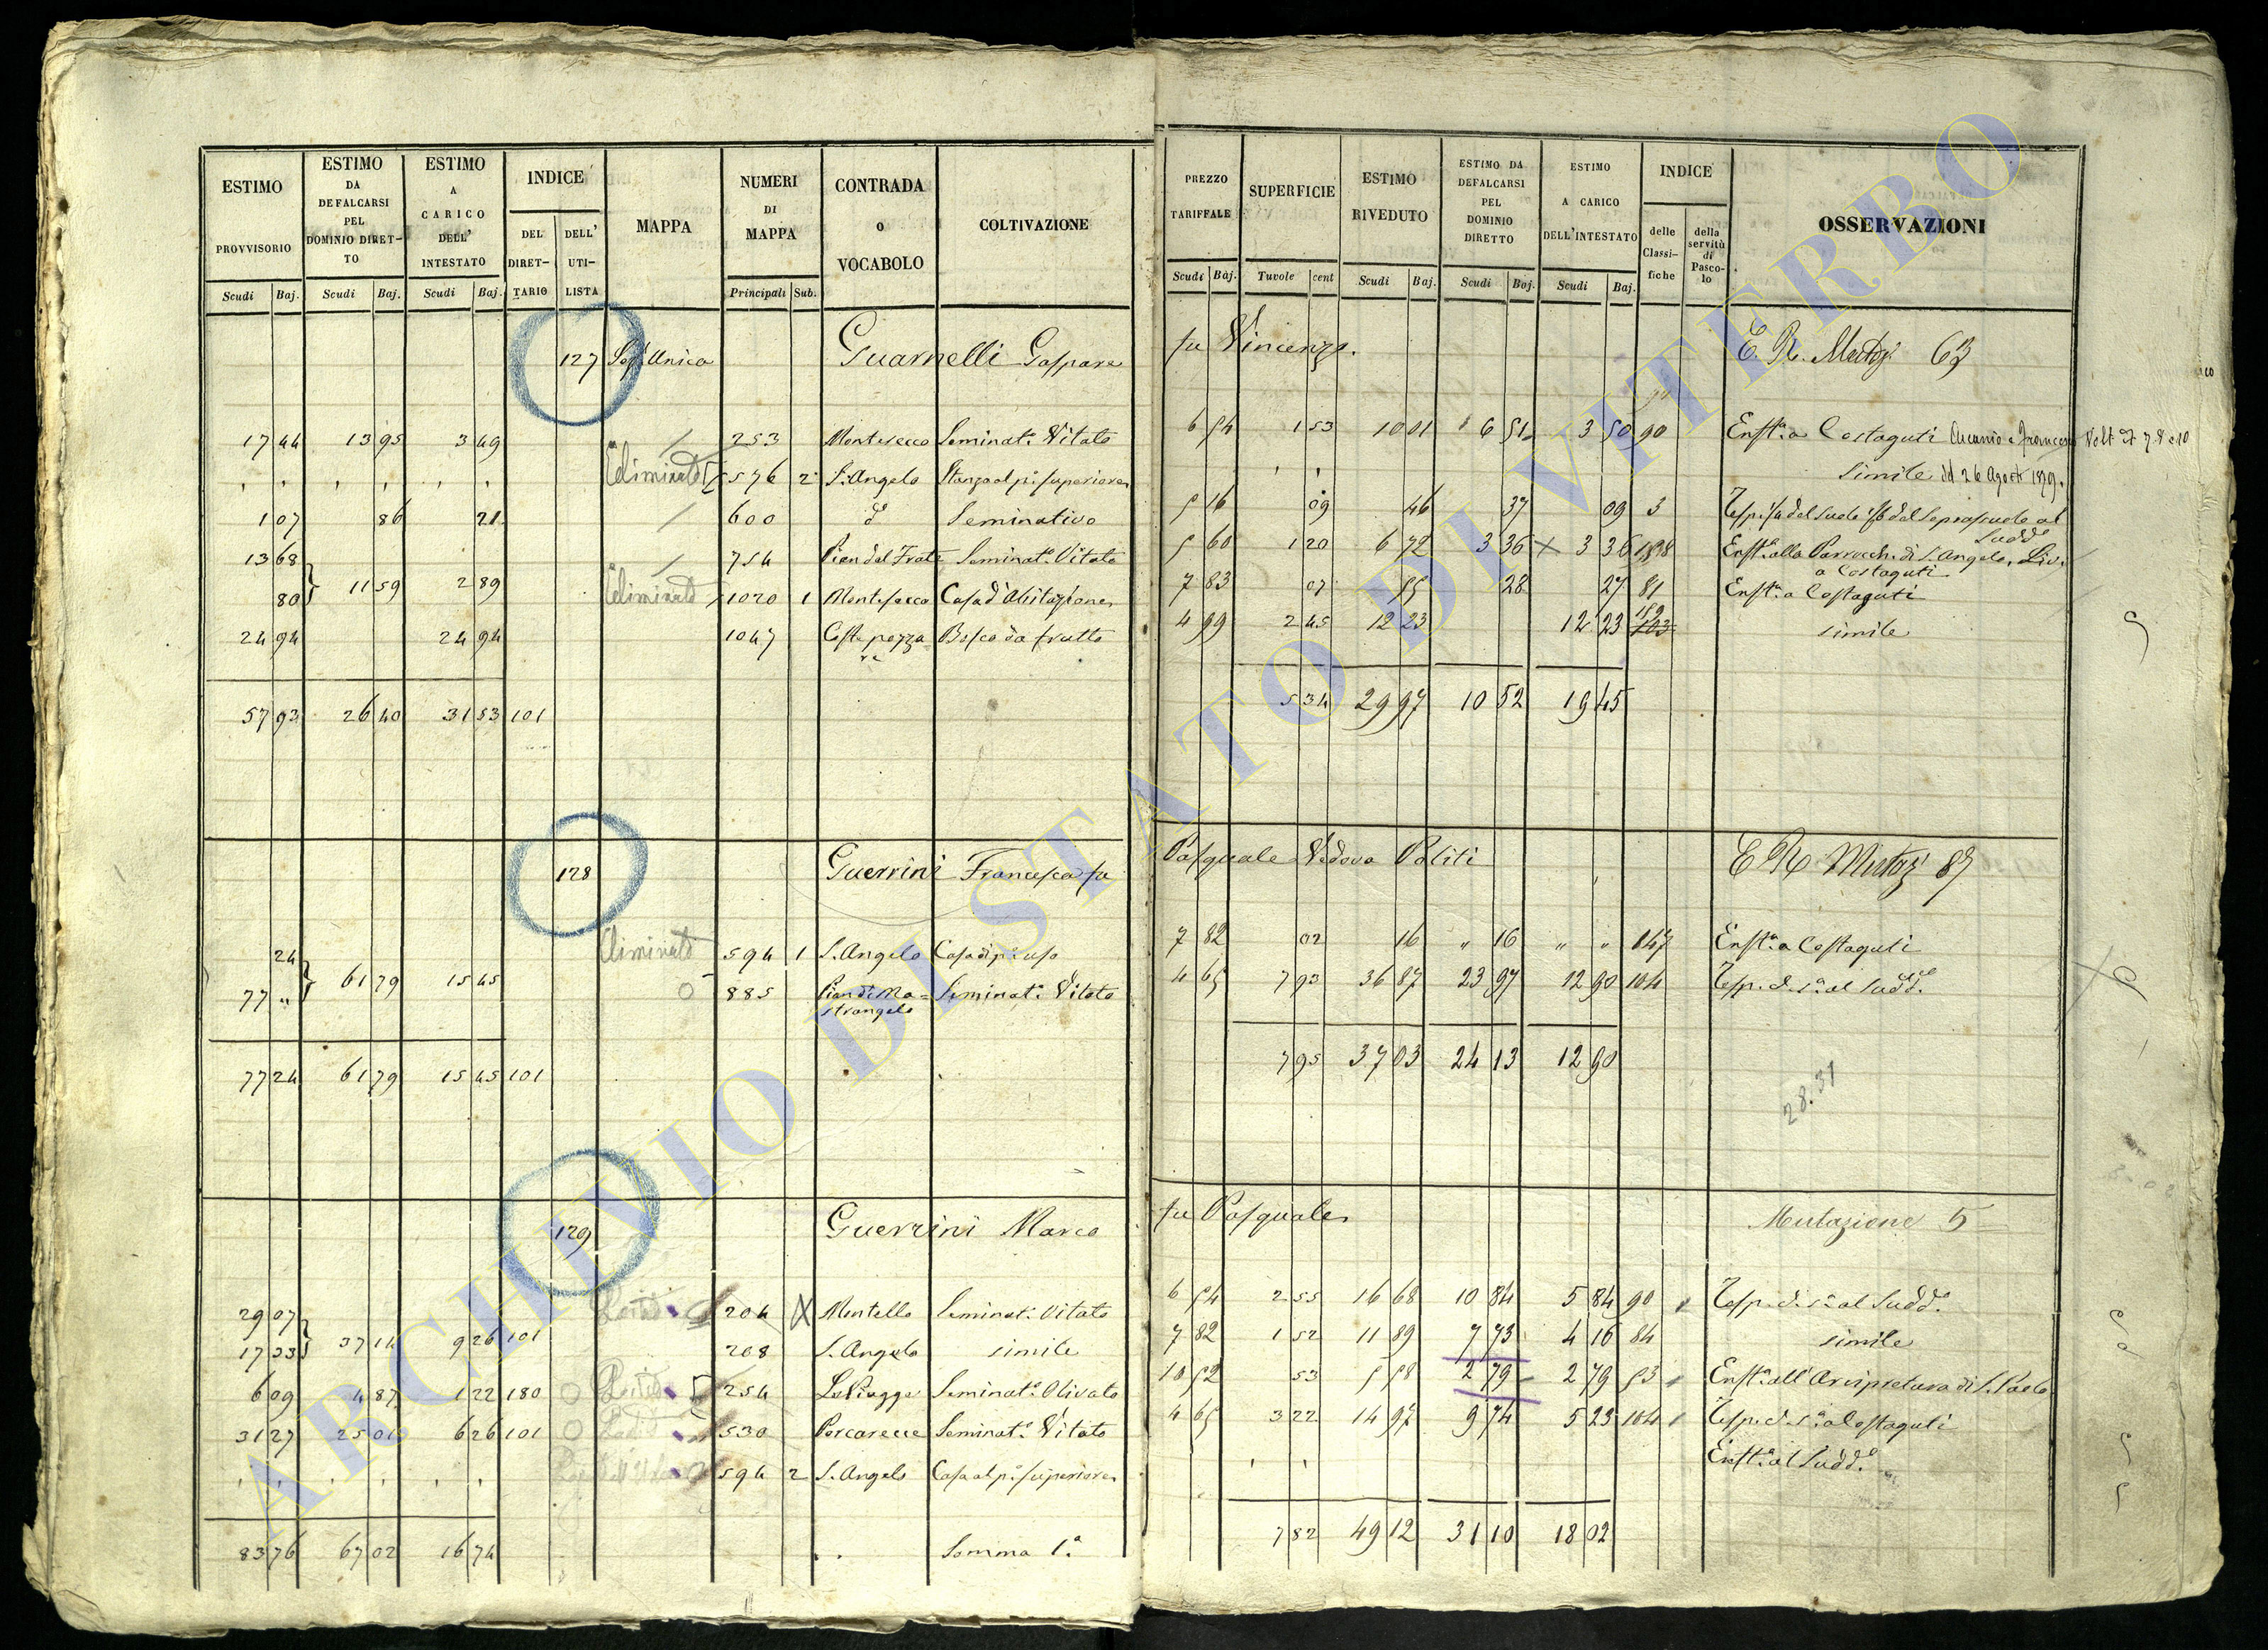 ESTIMO PROVVISORIO Scudi Baj.
ESTIMO DA DEFALCARSI PEL DOMINIO DIRET-TO Scudi Baj.
ESTIMO A CARICO DELL' INTESTATO Scudi Baj.
INDICE DEL DIRET-TARIO DELL' UTI-LISTA
MAPPA
NUMERI DI MAPPA Principali Sub.
CONTRADA O VOCABOLO
COLTIVAZIONE
PREZZO TARIFFALE Scudi Baj.
SUPERFICIE Tavole cent
ESTIMO RIVEDUTO Scudi Baj.
ESTIMO DA DEFALCARSI PEL DOMINIO DIRETTO Scudi Baj.
ESTIMO A CARICO DELL'INTESTATO Scudi Baj.
INDICE delle Classi-fiche della servitù di Pasco-lo
OSSERVAZIONI
127 Unica Guarnelli Gaspare fu Vincenzo. E. R. 63
17 44 13 95 3 49 253 Montesecco Seminat.o Vitato 6 54 1 53 10 01 6 51 3 50 90 Enft.a a Costaguti Ascanio e Francesco
Eliminato 576 2 S. Angelo Stanza al p.o superiore simile 26 Agosto 1879.
1 07 86 21 600 d.o Seminativo 5 16 09 46 37 09 3
13 68 754 Pian del Frate Seminat.o Vitato 5 60 1 20 6 72 3 36 3 36 Enft.a alla Parrocch. di S. Angelo. Liv.
a Costaguti
80 11 59 2 89 Eliminato 1020 1 Montesecco Casa d'Abitazione 7 83 07 55 28 27 81 Enft.a a Costaguti
24 94 24 94 1047 Bosco da frutto 4 99 2 45 12 23 12 23 103 simile
57 93 26 40 31 53 101 5 34 29 97 10 52 19 45
128 Guerrini Francesca fu Pasquale Vedova Politi E R 87
24 Eliminato 594 1 S. Angelo Casa di p.o uso 7 82 02 16 " 16 " " 147 Enft.a a Costaguti
77 " 61 79 15 45 885 Pian di Ma=strangelo Seminat.o Vitato 4 65 7 93 36 87 23 97 12 90 104 al Sudd.o
77 24 61 79 15 45 101 7 95 37 03 24 13 12 90
28.31
129 Guerrini Marco fu Pasquale Mutazione 5
29 07 204 Montello Seminat.o Vitato 6 54 2 55 16 68 10 84 5 84 90 al Sudd.o
17 33 37 14 9 26 101 208 S. Angelo simile 7 82 1 52 11 89 7 73 4 16 84 simile
6 09 4 87 1 22 180 254 Le Piagge Seminat.o Olivato 10 52 53 5 58 2 79 2 79 53 Enft.a all' Arcipretura di S. Paolo
31 27 25 01 6 26 101 530 Porcarecce Seminat.o Vitato 4 65 3 22 14 97 9 74 5 23 104 Costaguti
594 2 S. Angelo Casa al p.o superiore Enft.a al Sudd.o
83 76 67 02 16 74 Somma 1.a 7 82 49 12 31 10 18 02
ARCHIVIO DI STATO DI VITERBO